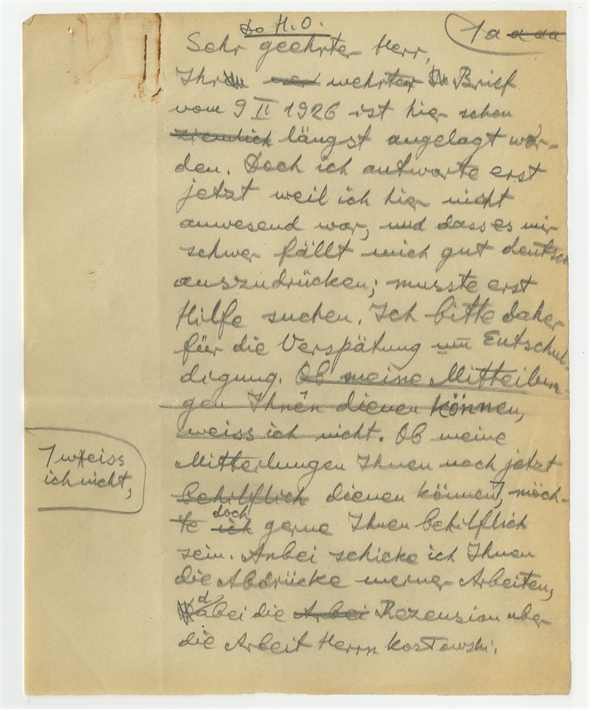 Do H.O.
1a a aa
Sehr geehrter Herr,
Ihr wehrter Brief
vom 9 II 1926 ist hier schon
ziemlich längst angelagt wor-
den. Doch ich antworte erst
jetzt weil ich hier nicht
anwesend war, und dass es mir
schwer fällt mich gut deutsch
auszudrücken; musste erst
Hilfe suchen. Ich bitte daher
für die Verspätung um Entschul-
digung. Ob meine Mitteilun-
gen Ihnen dienen können,
weiss ich nicht. Ob meine
Mitteilungen Ihnen noch jetzt
behilflich dienen können, möch-
te ich doch gerne Ihnen behilflich
sein. Anbei schicke ich Ihnen
die Abdrücke meiner Arbeiten,
dabei die Arbei Rezension uber
die Arbeit Herrn Kostowski.
weiss
ich nicht,